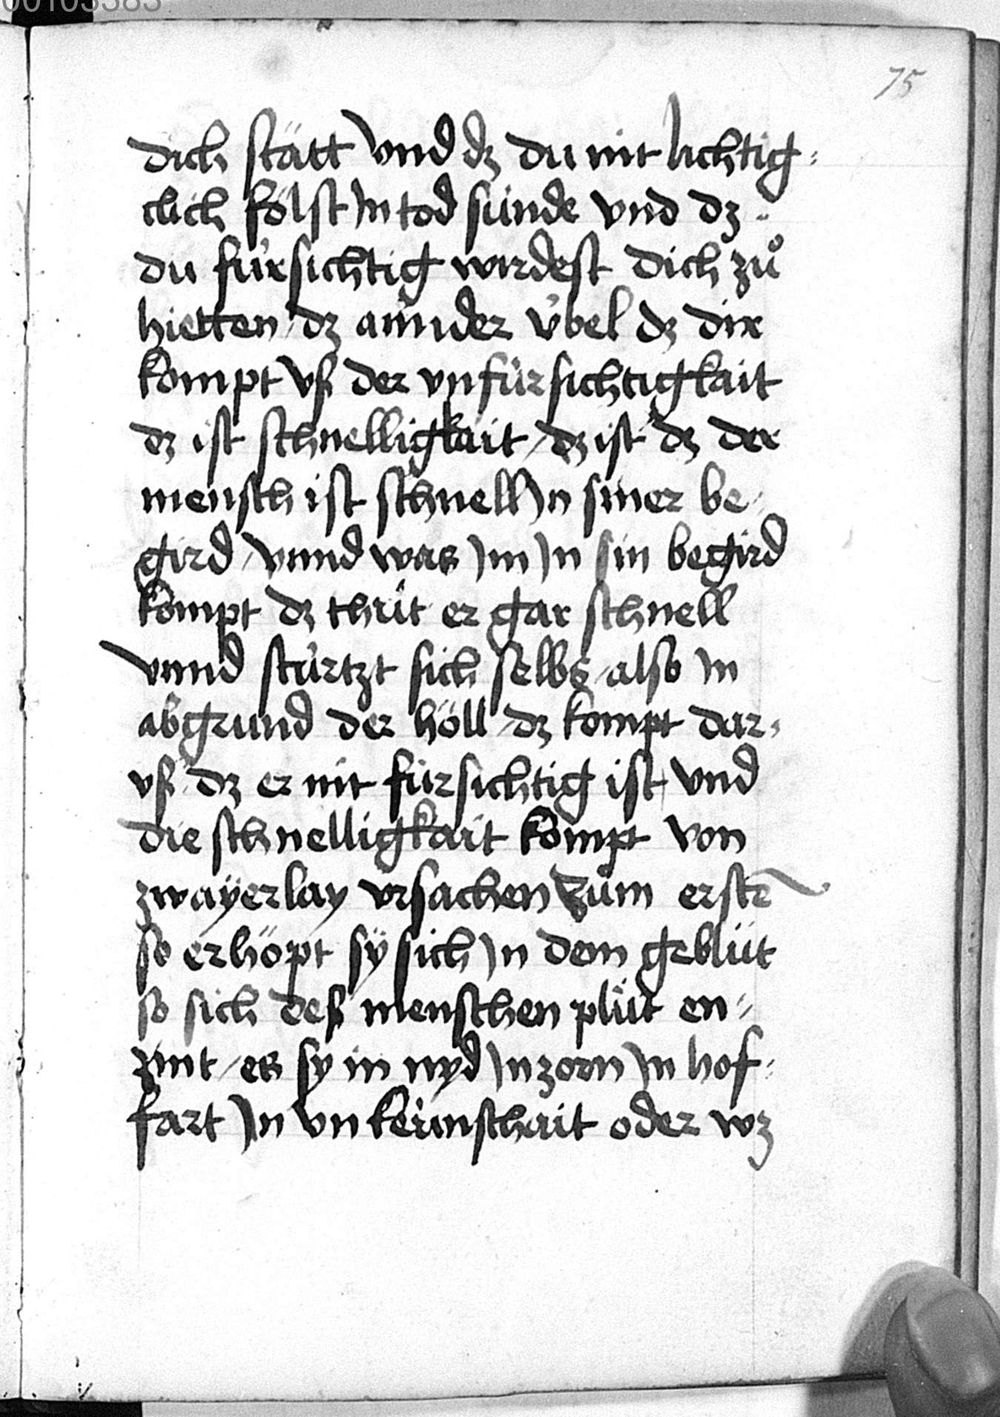 00103383
75
dich stätt vnd dz du nit lichtig-
clich fölst jn tod sünde vnd dz
du fürsichtig wirdest dich zů
hietten / dz annder v̈bel dz dir
kompt vß der vnfürsichtigkait
dz ist schnelligkait / dz ist dz der
mensch ist schnell jn siner be-
gird / vnnd was jm jn sin begird
kompt dz thüt er gar schnell
vnnd stürtzt sich selbs / also jn
abgrund der höll / dz kompt dar-
vß dz er nit fürsichtig ist vnd
die schnelligkait kompt von
zwaÿerlay vrsachen Züm erstē
so erhöpt sÿ sich jn dem geblüt
so sich deß menschen plüt en-
zint / es sy in nyd jn zorn jn hof-
fart jn vnkeünschait oder wz